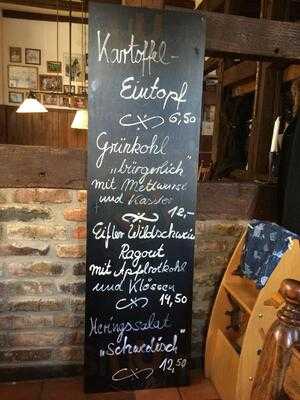 Kartoffel-
Eintopf
6,50
Grünkohl
„bürgerlich"
mit Mettwurst
und Kassler
12,-
Eifler Wildschwein
Ragout
mit Apflrotkohl
und Klössen
14,50
Heringssalat
„Schwedisch"
12,50